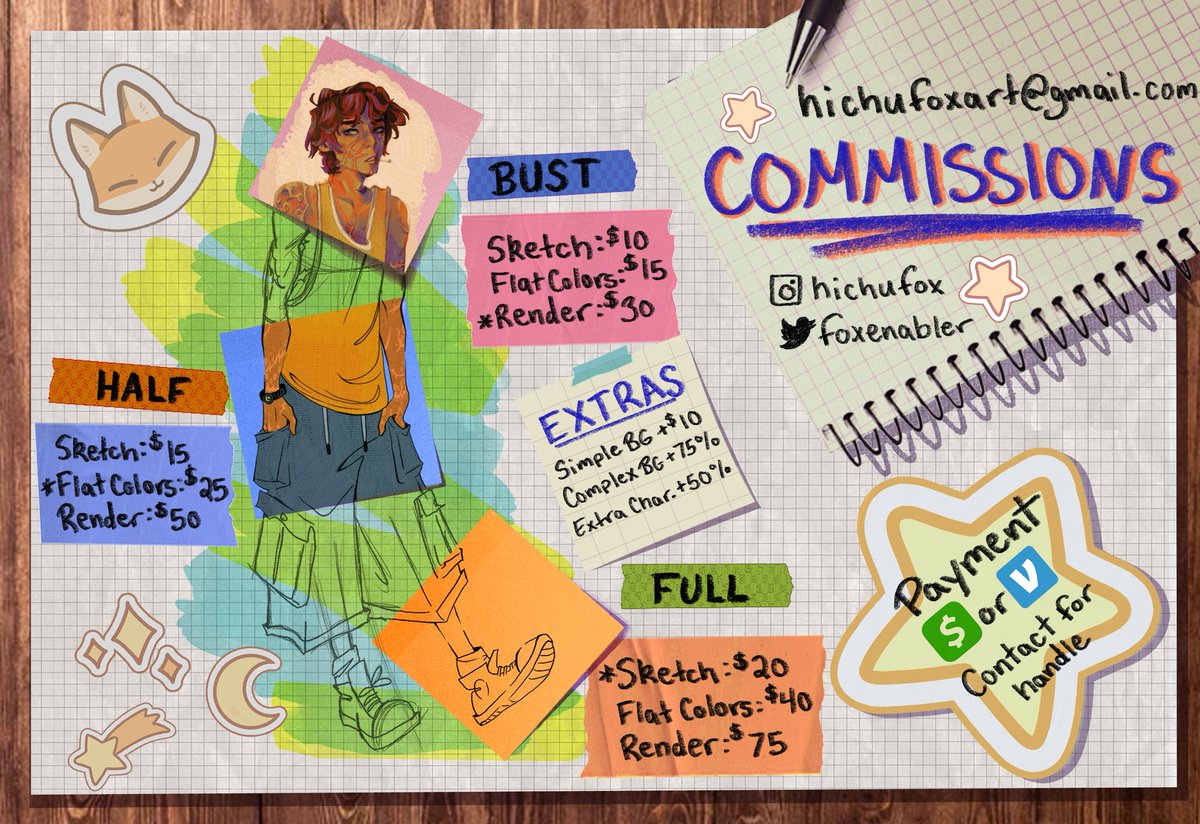 hichufoxart@gmail.com
COMMISSIONS
hichufox
foxenabler
BUST
Sketch: $10
Flat Colors: $15
*Render: $30
HALF
Sketch: $15
*Flat Colors: $25
Render: $50
EXTRAS
Simple BG +$10
Complex BG +75%
Extra Char. +50%
FULL
*Sketch: $20
Flat Colors: $40
Render: $75
Payment
$ or V
Contact for
handle